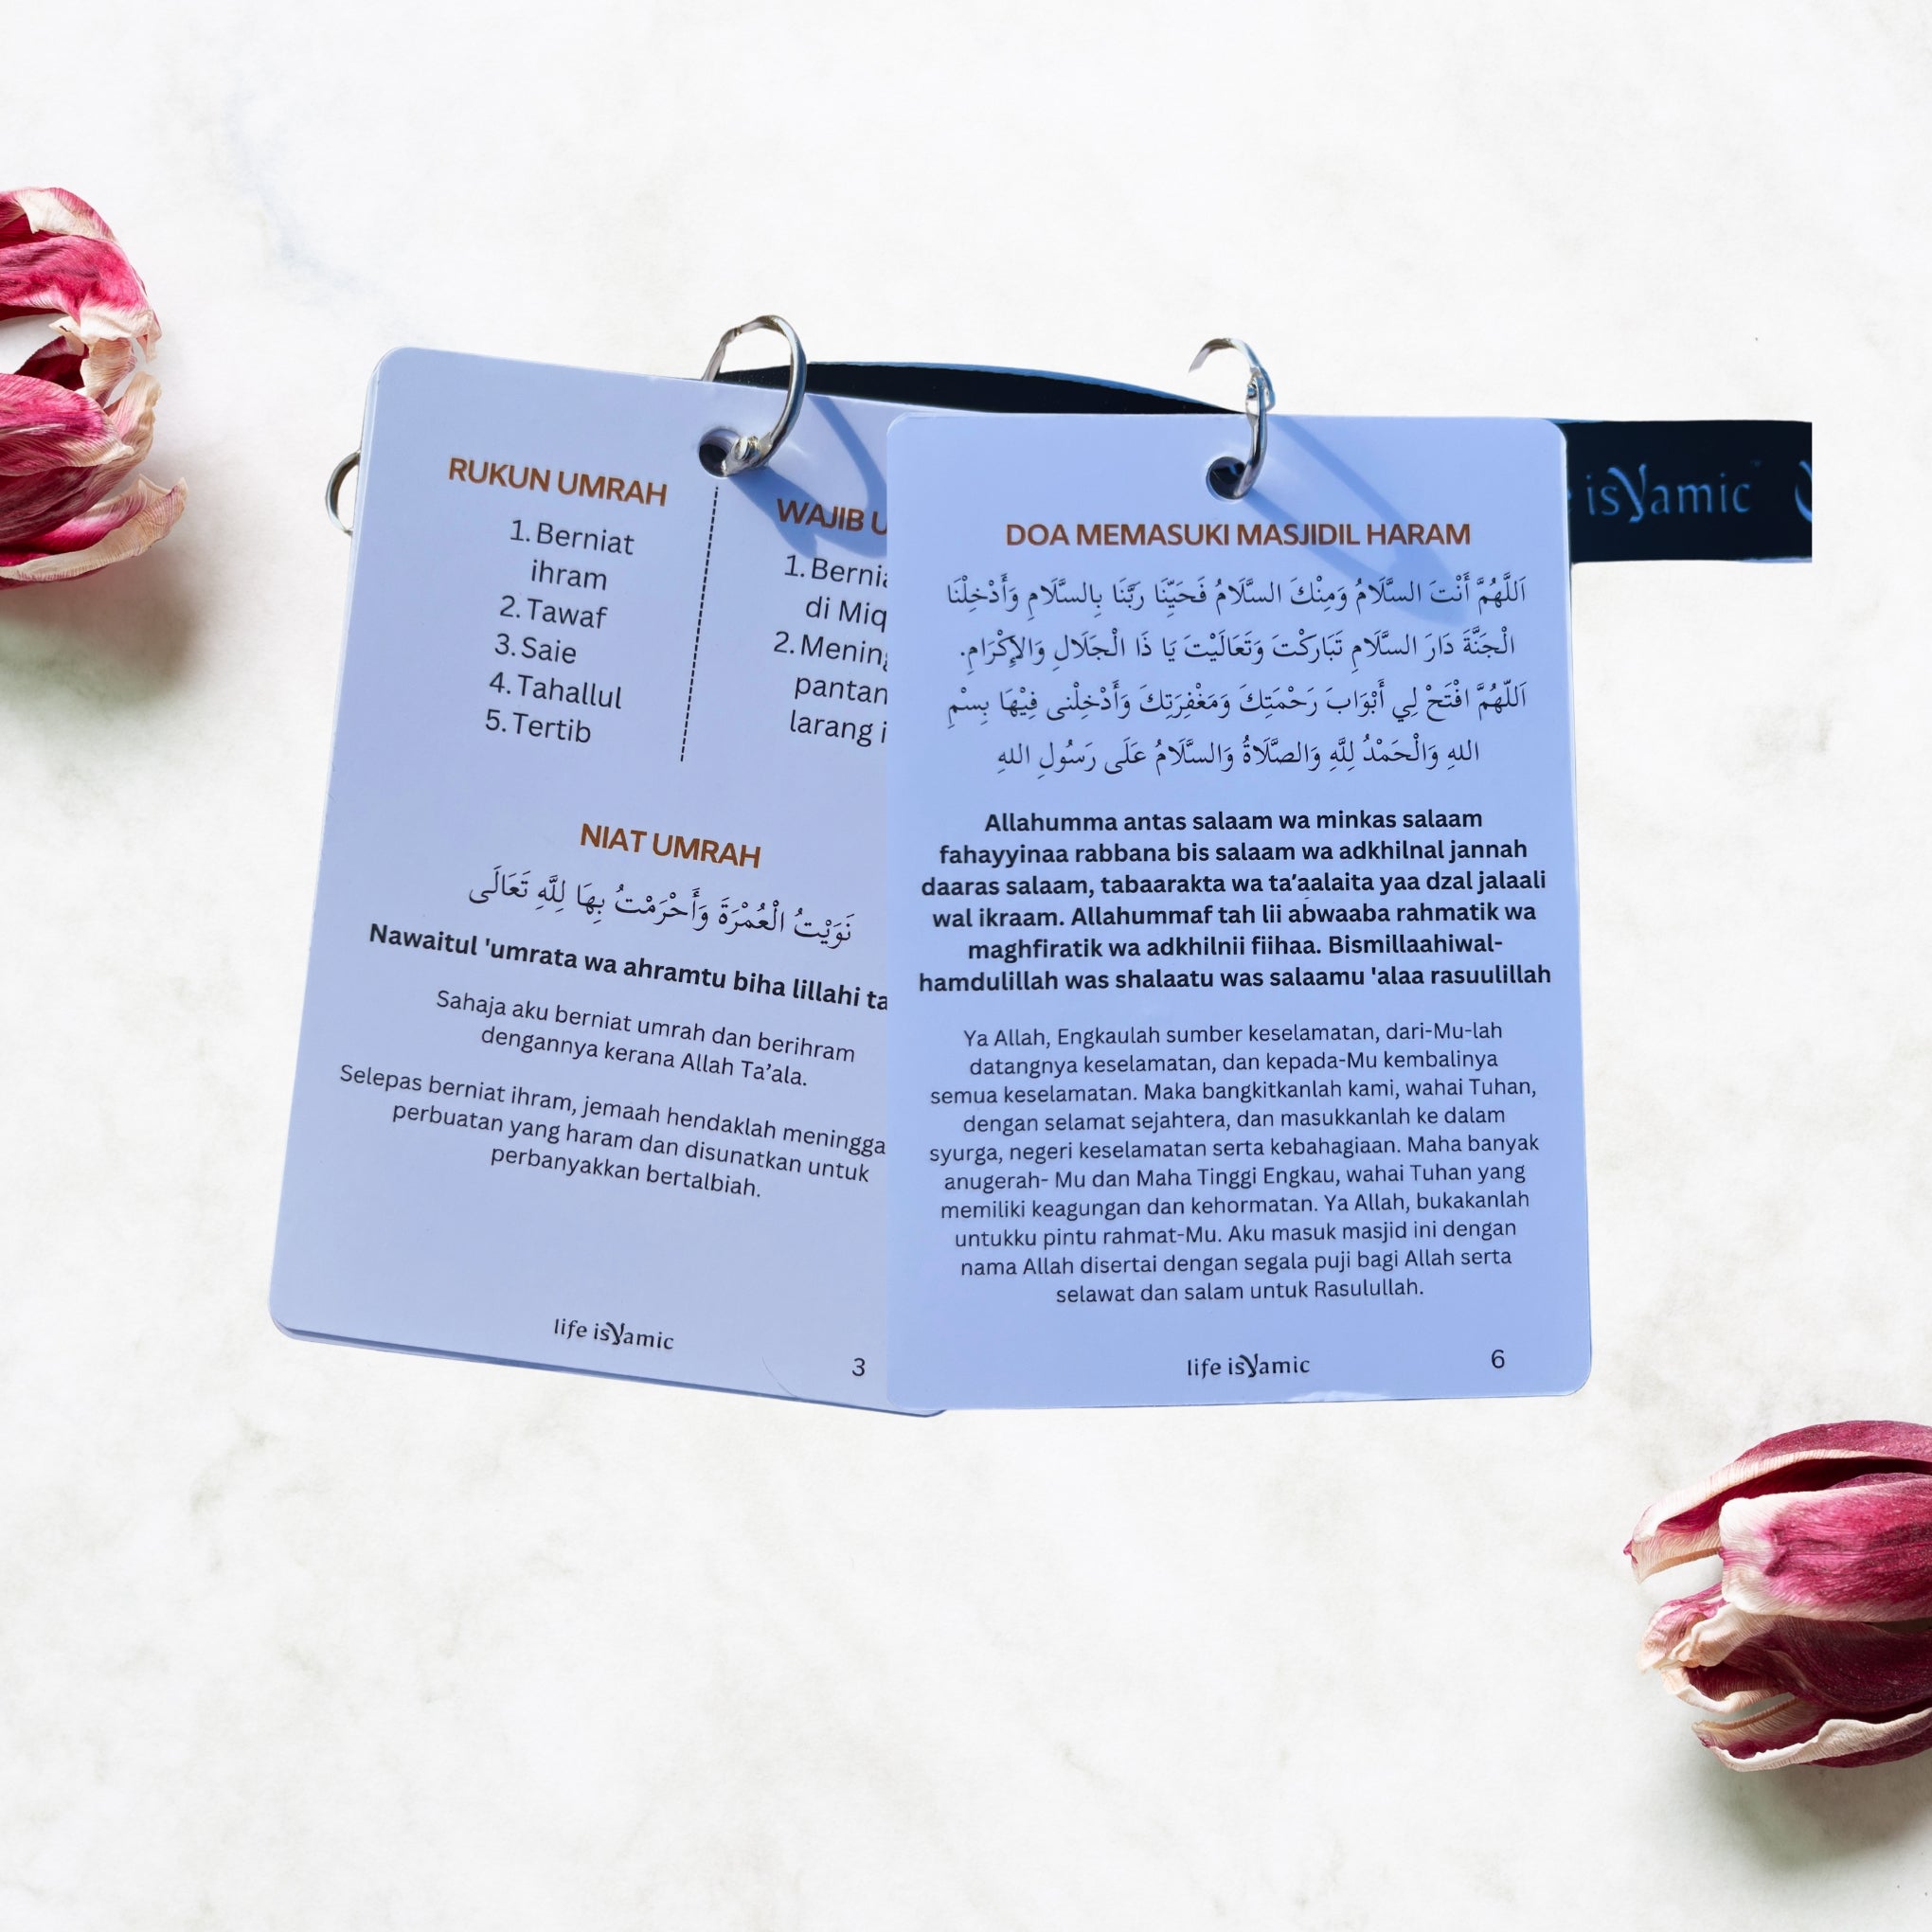 RUKUN UMRAH
1. Berniat
ihram
2. Tawaf
3. Saie
4. Tahallul
5. Tertib
WAJIB
1.
di
2.
NIAT UMRAH
نَوَيْتُ الْعُمْرَةَ وَأَحْرَمْتُ بِهَا لِلَّهِ تَعَالَى
Nawaitul 'umrata wa ahramtu biha lillahi ta
Sahaja aku berniat umrah dan berihram
dengannya kerana Allah Ta’ala.
Selepas berniat ihram, jemaah hendaklah meningga
perbuatan yang haram dan disunatkan untuk
perbanyakkan bertalbiah.
life isYamic
3
DOA MEMASUKI MASJIDIL HARAM
اَللَّهُمَّ أَنْتَ السَّلَامُ وَمِنْكَ السَّلَامُ فَحَيِّنَا رَبَّنَا بِالسَّلَامِ وَأَدْخِلْنَا
الْجَنَّةَ دَارَ السَّلَامِ تَبَارَكْتَ وَتَعَالَيْتَ يَا ذَا الْجَلَالِ وَالإِكْرَامِ.
اَللّهُمَّ افْتَحْ لِي أَبْوَابَ رَحْمَتِكَ وَمَغْفِرَتِكَ وَأَدْخِلْنِى فِيْهَا بِسْمِ
اللهِ وَالْحَمْدُ لِلَّهِ وَالصَّلَاةُ وَالسَّلَامُ عَلَى رَسُولِ اللهِ
Allahumma antas salaam wa minkas salaam
fahayyinaa rabbana bis salaam wa adkhilnal jannah
daaras salaam, tabaarakta wa ta’aalaita yaa dzal jalaali
wal ikraam. Allahummaf tah lii abwaaba rahmatik wa
maghfiratik wa adkhilnii fiihaa. Bismillaahiwal-
hamdulillah was shalaatu was salaamu 'alaa rasuulillah
Ya Allah, Engkaulah sumber keselamatan, dari-Mu-lah
datangnya keselamatan, dan kepada-Mu kembalinya
semua keselamatan. Maka bangkitkanlah kami, wahai Tuhan,
dengan selamat sejahtera, dan masukkanlah ke dalam
syurga, negeri keselamatan serta kebahagiaan. Maha banyak
anugerah- Mu dan Maha Tinggi Engkau, wahai Tuhan yang
memiliki keagungan dan kehormatan. Ya Allah, bukakanlah
untukku pintu rahmat-Mu. Aku masuk masjid ini dengan
nama Allah disertai dengan segala puji bagi Allah serta
selawat dan salam untuk Rasulullah.
life isYamic
6
isYamic